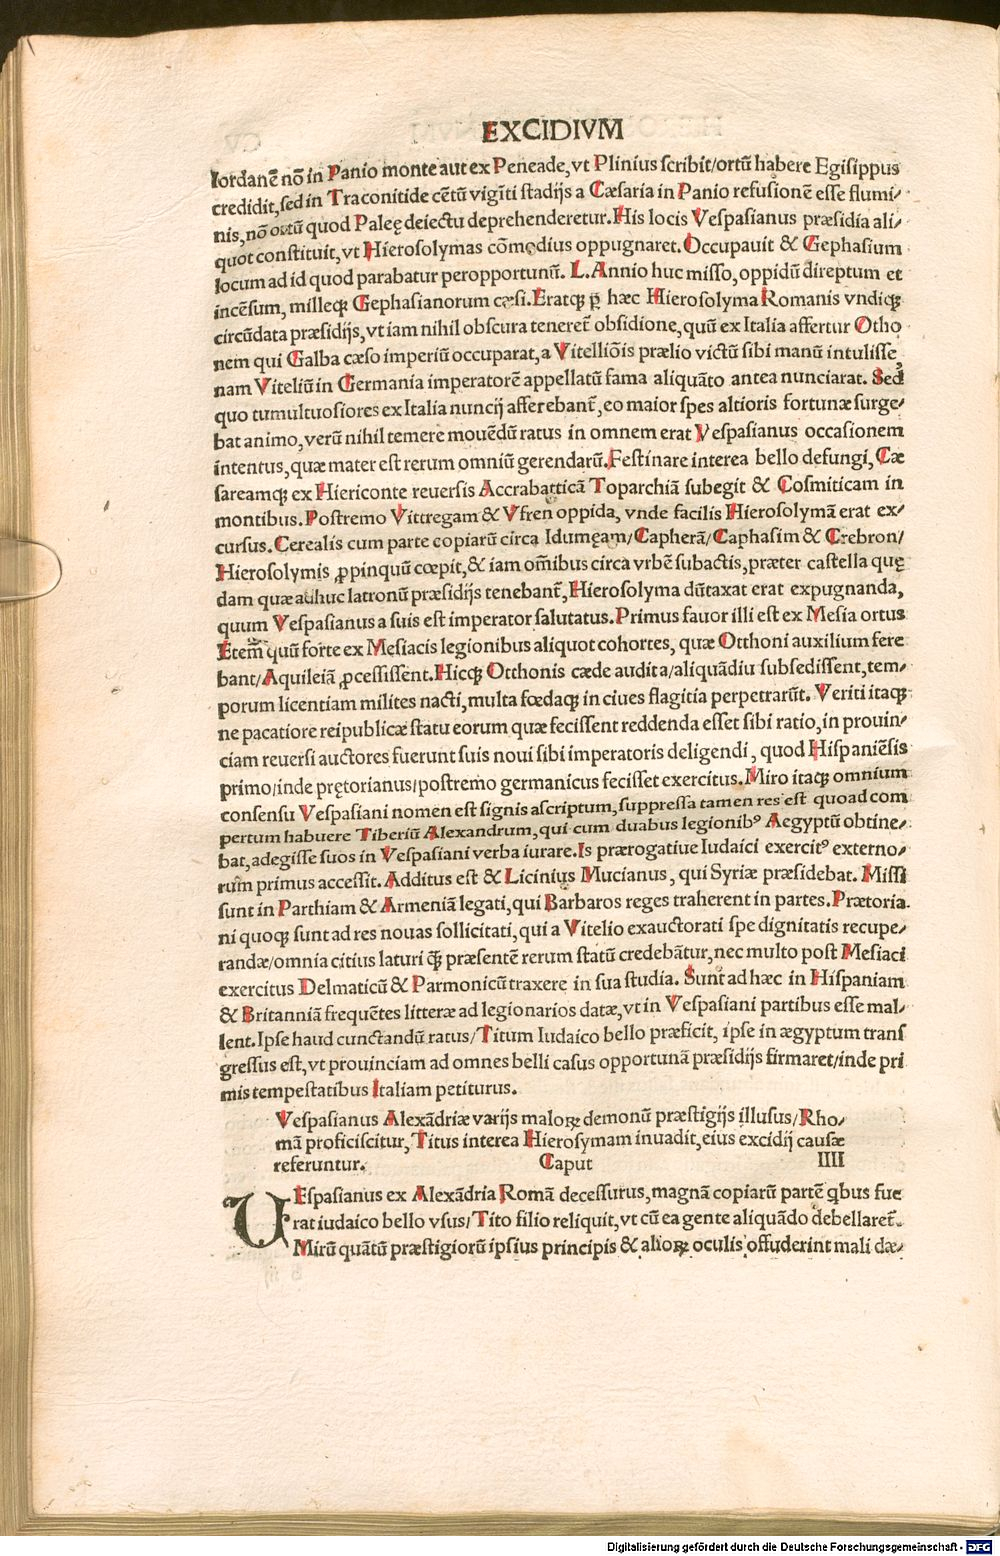 EXCIDIVM
Iordanē nō in Panio monte aut ex Peneade, vt Plinius scribit/ortū habere Egisippus
credidit, sed in Traconitide cētū vigīti stadijs a Cæsaria in Panio refusionē esse flumi/
nis, nō ortū quod Paleę deiectu deprehenderetur. His locis Vespasianus præsidia ali/
quot constituit, vt Hierosolymas cōmodius oppugnaret. Occupauit & Gephasium
locum ad id quod parabatur peropportunū. L. Annio huc misso, oppidū direptum et
incēsum, milleqꝫ Gephasianorum cæsi. Eratqꝫ p̲ hæc Hierosolyma Romanis vndiqꝫ
circūdata præsidijs, vt iam nihil obscura teneret̃ obsidione, quū ex Italia affertur Otho
nem qui Galba cæso imperiū occuparat, a Vitelliōis prælio victū sibi manū intulisse,
nam Viteliū in Germania imperatorē appellatū fama aliquāto antea nunciarat. Sed
quo tumultuosiores ex Italia nuncij afferebant̃, eo maior spes altioris fortunæ surge/
bat animo, verū nihil temere mouēdū ratus in omnem erat Vespasianus occasionem
intentus, quæ mater est rerum omniū gerendarū. Festinare interea bello defungi, Cæ
sareamqꝫ ex Hiericonte reuersis Accrabatticā Toparchiā subegit & Cosmiticam in
montibus. Postremo Vittregam & Vfren oppida, vnde facilis Hierosolymā erat ex/
cursus. Cerealis cum parte copiarū circa Idumęam/Capherā/Caphasim & Crebron/
Hierosolymis ꝓpinquū cœpit, & iam om̄ibus circa vrbē subactis, præter castella quę
dam quæ adhuc latronū præsidijs tenebant̃, Hierosolyma dūtaxat erat expugnanda,
quum Vespasianus a suis est imperator salutatus. Primus fauor illi est ex Mesia ortus
Etem̄ quū forte ex Mesiacis legionibus aliquot cohortes, quæ Otthoni auxilium fere
bant/Aquileiā ꝓcessissent. Hicqꝫ Otthonis cæde audita/aliquādiu subsedissent, tem/
porum licentiam milites nacti, multa fœdaqꝫ in ciues flagitia perpetrarūt. Veriti itaqꝫ
ne pacatiore reipublicæ statu eorum quæ fecissent reddenda esset sibi ratio, in prouin/
ciam reuersi auctores fuerunt suis noui sibi imperatoris deligendi, quod Hispaniēsis
primo/inde prętorianus/postremo germanicus fecisset exercitus. Miro itaqꝫ omnium
consensu Vespasiani nomen est signis ascriptum, suppressa tamen res est quoad com
pertum habuere Tiberiū Alexandrum, qui cum duabus legionibꝰ Aegyptū obtine/
bat, adegisse suos in Vespasiani verba iurare. Is prærogatiue Iudaici exercitꝰ externo/
rum primus accessit. Additus est & Licinius Mucianus, qui Syriæ præsidebat. Missi
sunt in Parthiam & Armeniā legati, qui Barbaros reges traherent in partes. Prætoria
ni quoqꝫ sunt ad res nouas sollicitati, qui a Vitelio exauctorati spe dignitatis recupe/
randæ/omnia citius laturi qꝫ̄ præsentē rerum statū credebātur, nec multo post Mesiaci
exercitus Delmaticū & Parmonicū traxere in sua studia. Sunt ad hæc in Hispaniam
& Britanniā frequētes litteræ ad legionarios datæ, vt in Vespasiani partibus esse mal/
lent. Ipse haud cunctandū ratus/Titum Iudaico bello præficit, ipse in ægyptum trans
gressus est, vt prouinciam ad omnes belli casus opportunā præsidijs firmaret/inde pri
mis tempestatibus Italiam petiturus.
Vespasianus Alexādriæ varijs maloꝝ demonū præstigijs illusus/Rho/
mā proficiscitur, Titus interea Hierosymam inuadit, eius excidij causæ
referuntur. Caput IIII
VEspasianus ex Alexādria Romā decessurus, magnā copiarū partē qbus fue
rat iudaico bello vsus/Tito filio reliquit, vt cū ea gente aliquādo debellaret̃.
Mirū quātū præstigiorū ipsius principis & alioꝝ oculis offuderint mali dæ/
Digitalisierung gefördert durch die Deutsche Forschungsgemeinschaft - DFG